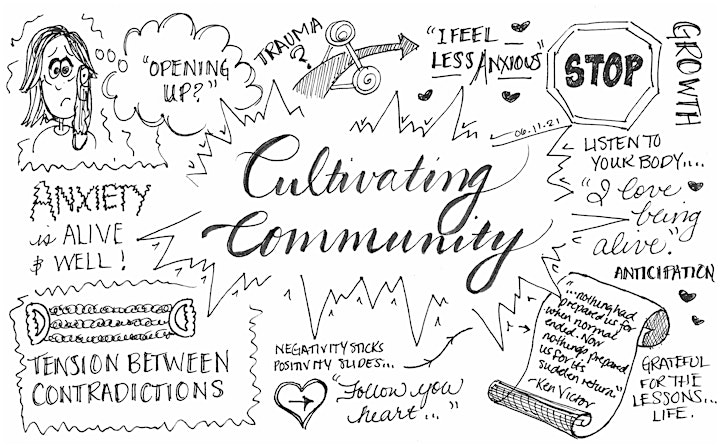 "OPENING
UP?"
TRAUMA
?
"I FEEL
LESS ANXIOUS"
STOP
GROWTH
06.11.21
Cultivating
Community
LISTEN TO
YOUR BODY....
"I love
being
alive."
ANXIETY
is ALIVE
& WELL!
ANTICIPATION
"...nothing had
prepared us for
when normal
ended. Now
nothings prepared
us for its
sudden return."
- Ken Victor
TENSION BETWEEN
CONTRADICTIONS
NEGATIVITY STICKS
POSITIVITY SLIDES...
"Follow you
heart..."
GRATEFUL
FOR THE
LESSONS...
LIFE.